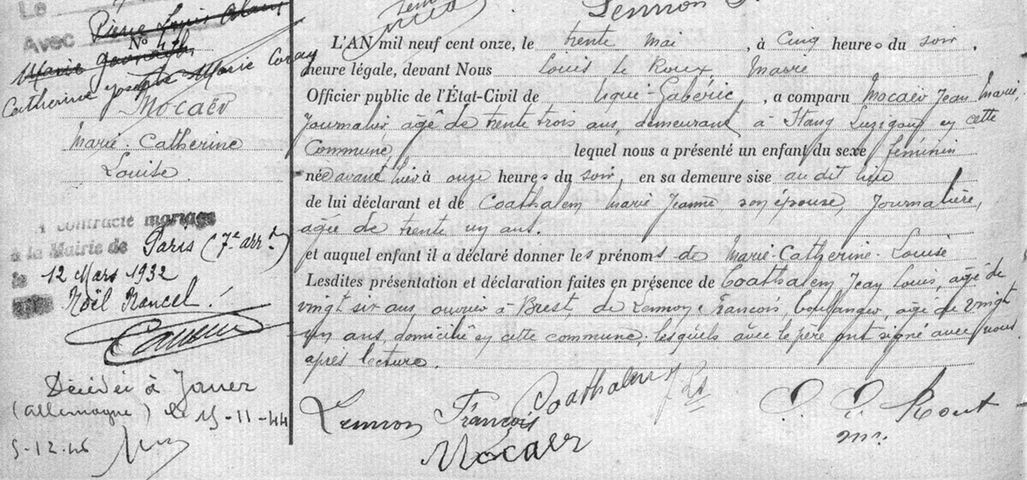 Le
Avec Pierre Louis Alain
No 47b
Marie
Catherine Josèphe Marie Coray
Mocaër
Marie-Catherine
Louise
A contracté mariage
à la Mairie de Paris (7e arrt)
le 12 Mars 1932
Noël Rancel
Décédée à Jauer
(allemagne) le 15-11-44
5-12-46
Lennon
L'AN mil neuf cent onze, le trente mai, à cinq heures du soir,
heure légale, devant Nous Louis Le Roux Maire
Officier public de l'État-Civil de Ergué-Gabéric, a comparu Mocaër Jean Marie,
Journalier âgé de trente trois ans, demeurant à Stang Luzigou en cette
Commune lequel nous a présenté un enfant du sexe féminin
née avant hier à onze heures du soir, en sa demeure sise au dit lieu
de lui déclarant et de Coathalem Marie Jeanne, son épouse, Journalière,
âgée de trente un ans.
et auquel enfant il a déclaré donner les prénoms de Marie-Catherine-Louise
Lesdites présentation et déclaration faites en présence de Coathalem, Jean Louis, âgé de
vingt six ans ouvrier à Brest de Lennon François, boulanger, âgé de vingt
un ans, domicilié en cette commune, lesquels avec le père ont signé avec nous
après lecture.
Lennon François Coathalem J Ls L. Le Rout
Mocaër mre